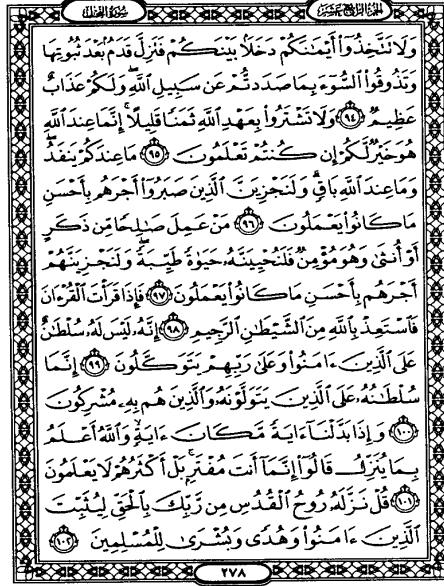 الجزء الرابع عشر
سورة النحل
وَلَا تَتَّخِذُوٓا۟ أَيْمَـٰنَكُمْ دَخَلًۢا بَيْنَكُمْ فَتَزِلَّ قَدَمٌۢ بَعْدَ ثُبُوتِهَا
وَتَذُوقُوا۟ ٱلسُّوٓءَ بِمَا صَدَدتُّمْ عَن سَبِيلِ ٱللَّهِ ۖ وَلَكُمْ عَذَابٌ
عَظِيمٌ ﴿٩٤﴾ وَلَا تَشْتَرُوا۟ بِعَهْدِ ٱللَّهِ ثَمَنًا قَلِيلًا ۚ إِنَّمَا عِندَ ٱللَّهِ
هُوَ خَيْرٌ لَّكُمْ إِن كُنتُمْ تَعْلَمُونَ ﴿٩٥﴾ مَا عِندَكُمْ يَنفَدُ ۖ
وَمَا عِندَ ٱللَّهِ بَاقٍ ۗ وَلَنَجْزِيَنَّ ٱلَّذِينَ صَبَرُوٓا۟ أَجْرَهُم بِأَحْسَنِ
مَا كَانُوا۟ يَعْمَلُونَ ﴿٩٦﴾ مَنْ عَمِلَ صَـٰلِحًا مِّن ذَكَرٍ
أَوْ أُنثَىٰ وَهُوَ مُؤْمِنٌ فَلَنُحْيِيَنَّهُۥ حَيَوٰةً طَيِّبَةً ۖ وَلَنَجْزِيَنَّهُمْ
أَجْرَهُم بِأَحْسَنِ مَا كَانُوا۟ يَعْمَلُونَ ﴿٩٧﴾ فَإِذَا قَرَأْتَ ٱلْقُرْءَانَ
فَٱسْتَعِذْ بِٱللَّهِ مِنَ ٱلشَّيْطَـٰنِ ٱلرَّجِيمِ ﴿٩٨﴾ إِنَّهُۥ لَيْسَ لَهُۥ سُلْطَـٰنٌ
عَلَى ٱلَّذِينَ ءَامَنُوا۟ وَعَلَىٰ رَبِّهِمْ يَتَوَكَّلُونَ ﴿٩٩﴾ إِنَّمَا
سُلْطَـٰنُهُۥ عَلَى ٱلَّذِينَ يَتَوَلَّوْنَهُۥ وَٱلَّذِينَ هُم بِهِۦ مُشْرِكُونَ
﴿١٠٠﴾ وَإِذَا بَدَّلْنَآ ءَايَةً مَّكَانَ ءَايَةٍ ۙ وَٱللَّهُ أَعْلَمُ
بِمَا يُنَزِّلُ قَالُوٓا۟ إِنَّمَآ أَنتَ مُفْتَرٍۭ ۚ بَلْ أَكْثَرُهُمْ لَا يَعْلَمُونَ
﴿١٠١﴾ قُلْ نَزَّلَهُۥ رُوحُ ٱلْقُدُسِ مِن رَّبِّكَ بِٱلْحَقِّ لِيُثَبِّتَ
ٱلَّذِينَ ءَامَنُوا۟ وَهُدًى وَبُشْرَىٰ لِلْمُسْلِمِينَ ﴿١٠٢﴾
٢٧٨